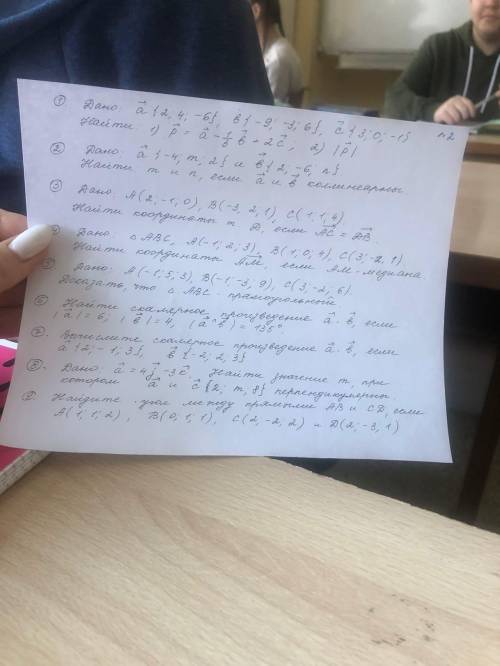 ① Дано: a {2; 4; -6}, b {-9; -3; 6}, c {3; 0; -1} n2
Найти 1) p = a - 1/3 b + 2c, 2) |p|
② Дано: a {-4; m; 2} и b {2; -6; n}
Найти m и n, если a и b коллинеарны
③ Дано: A(2; -1; 0), B(-3; 2; 1), C(1; 1; 4)
Найти координаты т. D, если AC = DB.
Дано: △ABC, A(-1; 2; 3), B(1; 0; 4), C(3; -2; 1)
Найти координаты AM, если AM-медиана.
Дано: A(-1; 5; 3), B(-1; -3; 9), C(3; -2; 6).
Доказать, что △ABC - прямоугольный
⑥ Найти скалярное произведение a · b, если
|a| = 6, |b| = 4, (a^b) = 135°.
⑦ Вычислите скалярное произведение a · b, если
a {2; -1; 3}, b {-2; 2; 3}
⑧ Дано: a = 4j - 3k. Найти значение m, при
котором a и c {2; m; 8} перпендикулярны.
⑨ Найдите угол между прямыми AB и CD, если
A(1; 1; 2), B(0; 1; 1), C(2; -2; 2) и D(2; -3; 1)